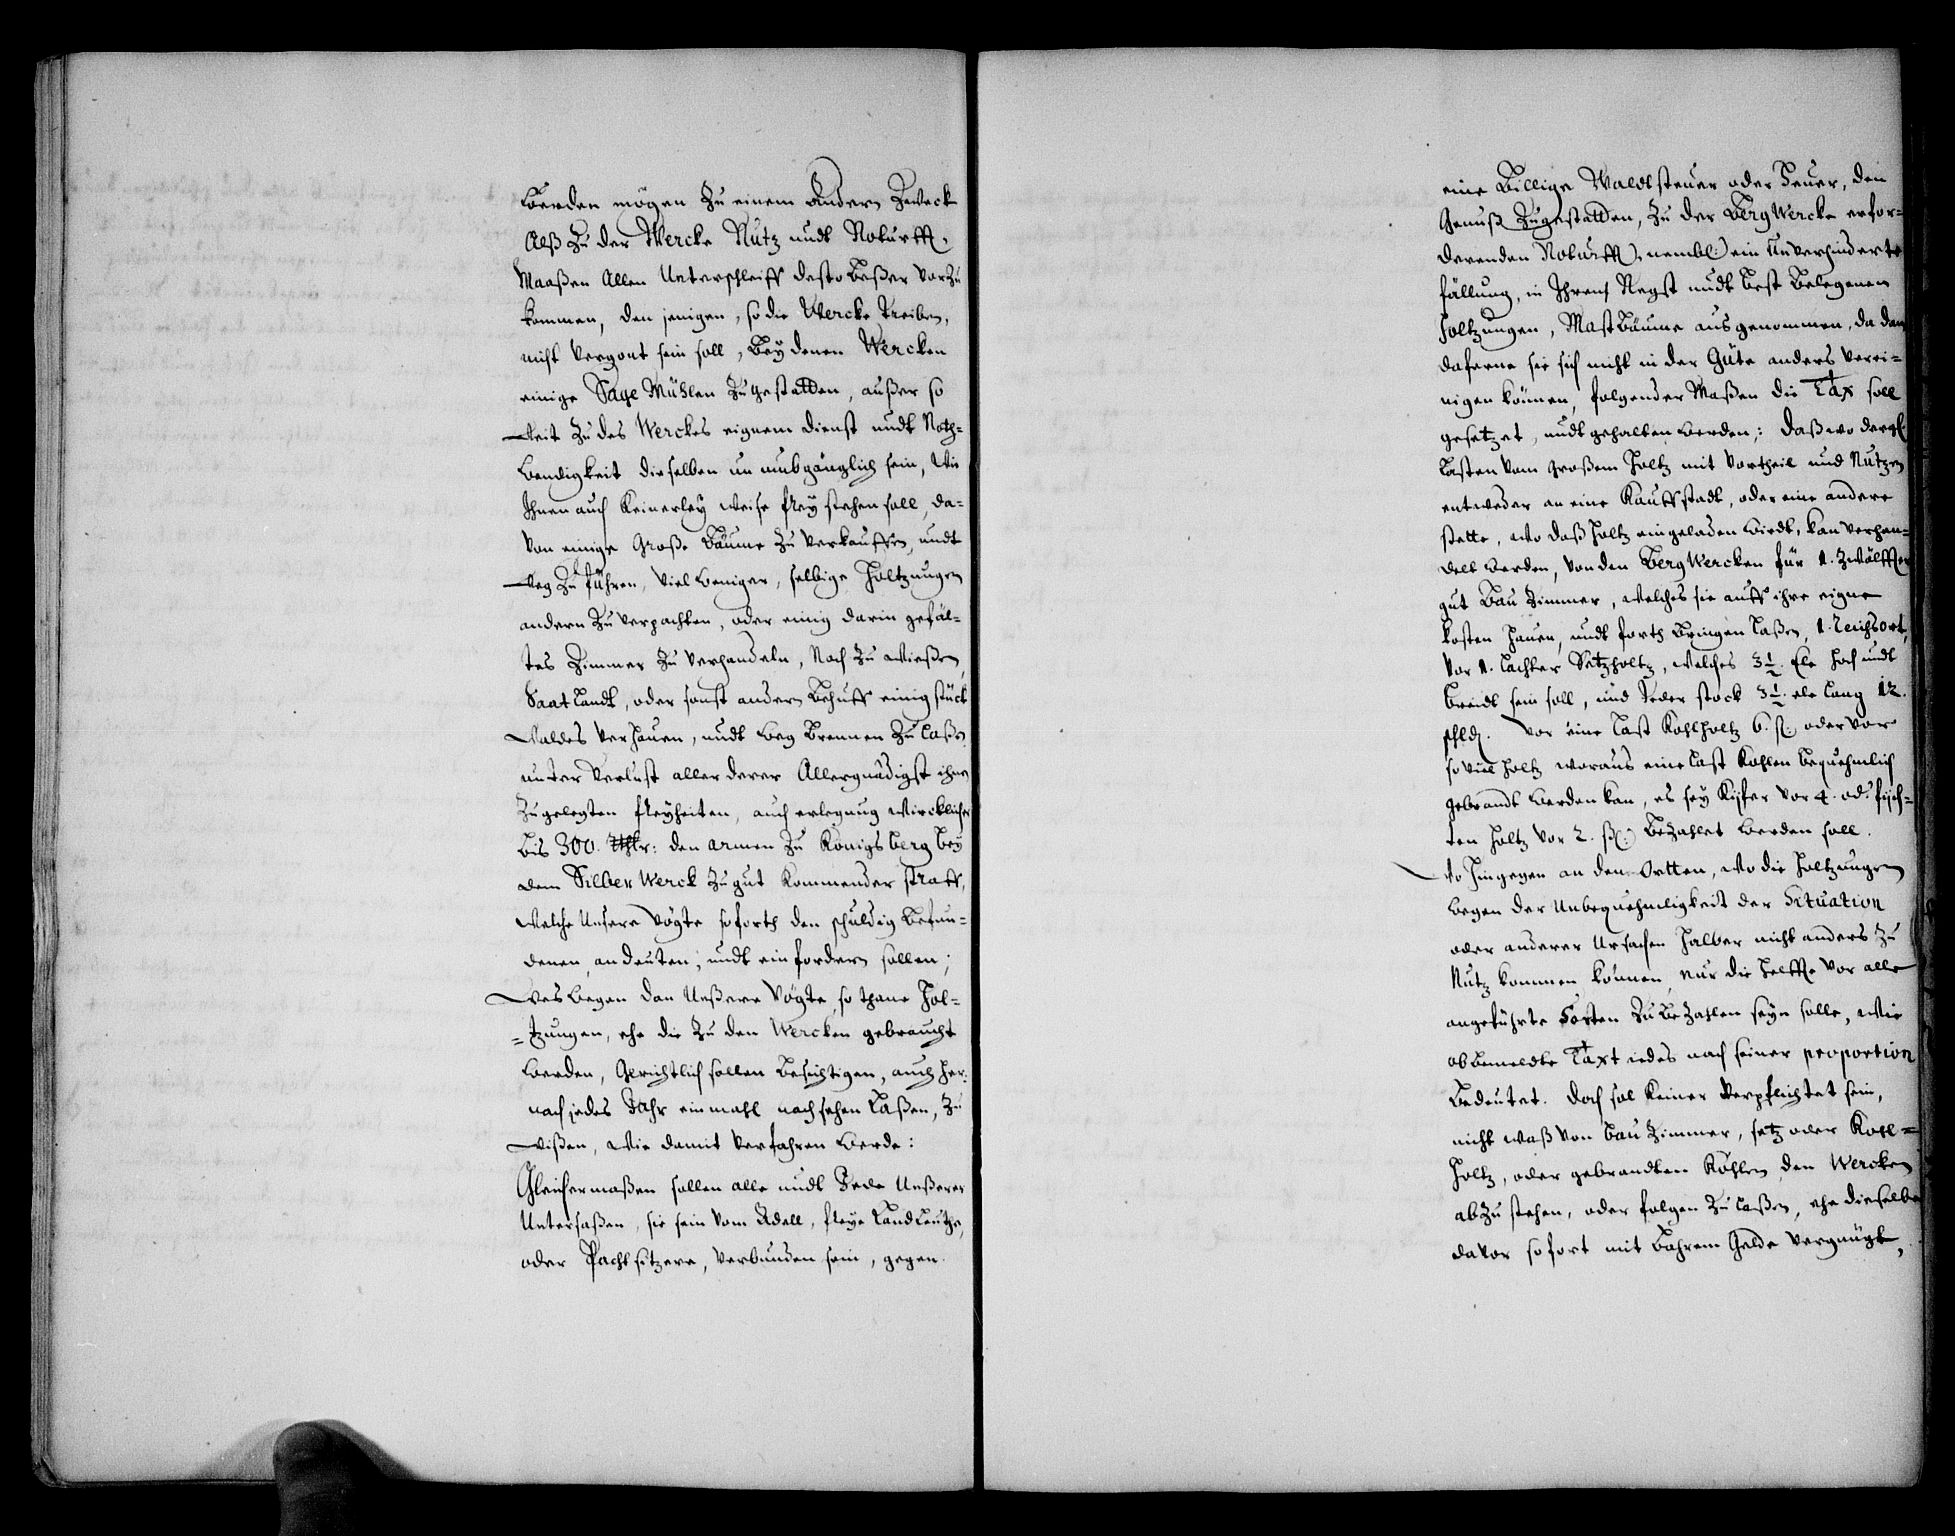 werden mögen Zu einem Andern Zweck
Alß Zu der Wercke Nutz undt Noturfft,
Maaßen Allen Unterschleiff desto Beßer vorZu
kommen, den jenigen, so die Wercke Treiben,
nicht vergont sein soll, Bey denen Wercken
einige Sage Mühlen Zugestatten, außer so
weit Zu des Werckes eignem dienst undt Noth=
wendigkeit dieselben un umbgänglich sein, Wie
Ihnen auch Keinerley weise frey stehen soll, da=
von einige Große Bäume Zu verkauffen, undt
weg Zu führen, viel weniger, selbige Holtzungen
andern Zu verpachten, oder einig darin gefäl=
tes Zimmer Zu verhandeln, Noch Zu Wießen,
Saat Landt, oder sonst andern Behuff einig stück
Waldes verhauen, undt weg Brennen Zu Laßen,
unter verlust aller derer Allergnädigst ihnen
Zugelegten freyheiten, auch erlegnug Wircklicher
bis 300. Rthlr: den armen Zu Königsberg bey
dem Silber Werck Zu gut Kommender straff,
Welche Unsere Vögte soforth den schuldig befun=
denen andeuten, undt einfordern sollen;
Deswegen dan Unßere Vögte so thane Hol=
=tzungen, ehe die Zu den Wercken gebraucht
werden, Gerichtlich sollen besichtigen, auch her=
nach jedes Jahr ein mahl nach sehen Laßen, Zu
wißen, Wie damit verfahren werde:
Gleichermaßen sollen alle undt Jede Unßerer
Untersaßen, sie sein vom Adell, freye Landleuthe,
oder Pachtsitzere, verbunden sein, gegen
eine Billige Waldtsteuer oder Heuer, den
Genuß Zugestatten, Zu der BergWercke erfor=
derenden Noturfft, nembl: ein Unverhinderte
fällung, in Ihrens Negst undt best Belegenen
Holtzungen, MastBäume ausgenommen, da dann
daferne sie sich nicht in der Güte anders verei=
nigen können, folgender Maßen die Tax soll
gesetzet, undt gehalten werden: Daß wo dergl
Lasten vom Großem Holtz mit Vortheil und Nutzen
entweder an eine Kauffstadt, oder eine andere
stette, Wo daß Holtz eingeladen wirdt, kan verhan=
delt werden, von den BergWercken für 1. Zwölffter
gut Bau Zimmer, Welches sie auff ihre eigne
kosten Hauen, undt forth Bringen Laßen, 1. Reichsort,
Vor 1. Lachter Setzholtz, Welches 3½. Ele hoch undt
breidt sein soll, und Jeder stock 3½. ele lang 12.
schld. Vor eine Last Kohlholtz 6. ß: oder vor
soviel Holtz woraus eine Last Kohlen bequehmlich
gebrandt werden kan, es sey Kifer vor 4. od: fich=
ten Holtz vor 2. ß: bezahlet werden soll.
Wo Hingegen an den Ortten, Wo die Holtzungen
wegen der Unbequehmligkeit der Situation
oder anderer Ursachen Halber nicht anders Zu
Nutz kommen können, nur die Helffte vor alle
angeführte Sorten Zu beZahlen seyn solle, Wie
obbemeldte Taxt iedes nach seiner proportion
Bedeutet. Doch sol Keiner verpflichtet sein,
nicht waß von Bau Zimmer, setz oder Kohl=
Holtz, oder gebrandten Kohlen den Wercken
abZu stehen, oder folgen Zu laßen, ehe dieselbe
davor sofort mit Bahrem Gelde vergnügt,